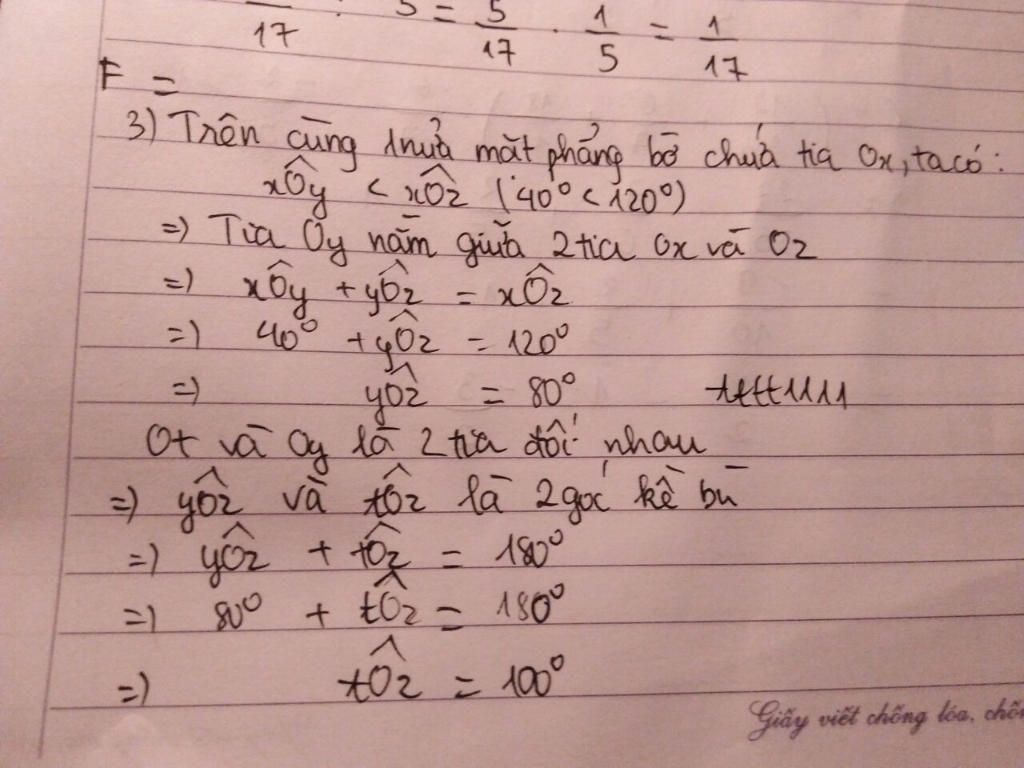 17 : 5 = 5/17 . 1/5 = 1/17
F =
3) Trên cùng 1 nửa mặt phẳng bờ chứa tia Ox, ta có:
xÔy < xÔz (40° < 120°)
=) Tia Oy nằm giữa 2 tia Ox và Oz
=) xÔy + yÔz = xÔz
=) 40° + yÔz = 120°
=) yÔz = 80°
Ot và Oy là 2 tia đối nhau
=) yÔz và tÔz là 2 góc kề bù
=) yÔz + tÔz = 180°
=) 80° + tÔz = 180°
=) tÔz = 100°
Giấy viết chống lóa, chố